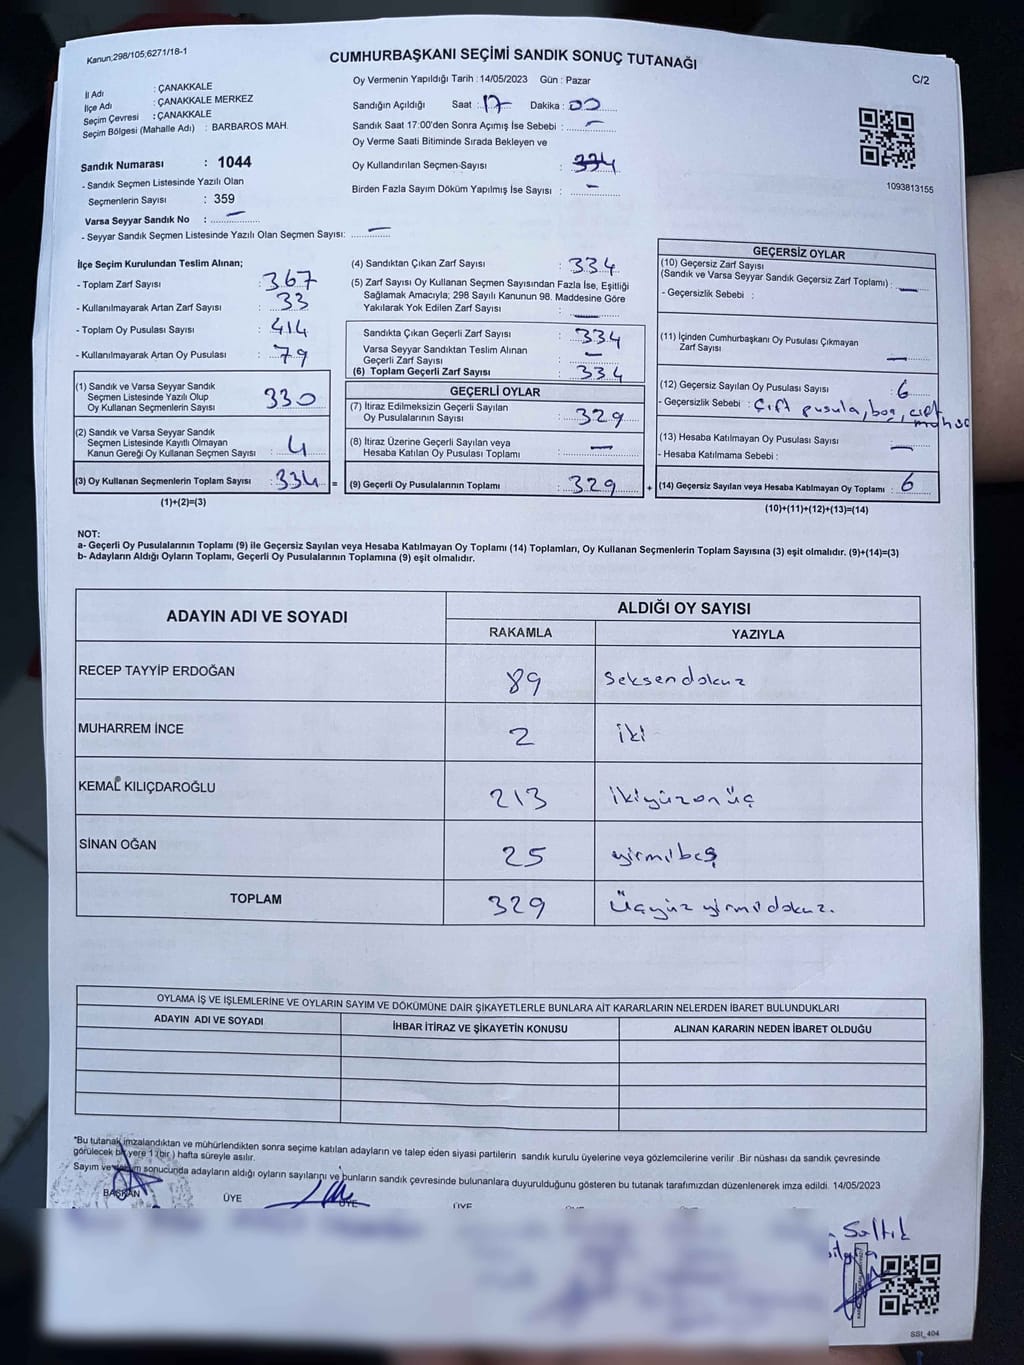 Kanun,298/105,6271/18-1
CUMHURBAŞKANI SEÇİMİ SANDIK SONUÇ TUTANAĞI
C/2
İl Adı : ÇANAKKALE
İlçe Adı : ÇANAKKALE MERKEZ
Seçim Çevresi : ÇANAKKALE
Seçim Bölgesi (Mahalle Adı) : BARBAROS MAH.
Sandık Numarası : 1044
- Sandık Seçmen Listesinde Yazılı Olan
Seçmenlerin Sayısı : 359
Varsa Seyyar Sandık No : –
- Seyyar Sandık Seçmen Listesinde Yazılı Olan Seçmen Sayısı: –
Oy Vermenin Yapıldığı Tarih : 14/05/2023 Gün : Pazar
Sandığın Açıldığı Saat : 17 Dakika : 00
Sandık Saat 17:00'den Sonra Açımış İse Sebebi : –
Oy Verme Saati Bitiminde Sırada Bekleyen ve
Oy Kullandırılan Seçmen Sayısı : 334
Birden Fazla Sayım Döküm Yapılmış İse Sayısı : –
1093813155
İlçe Seçim Kurulundan Teslim Alınan;
- Toplam Zarf Sayısı : 367
- Kullanılmayarak Artan Zarf Sayısı : 33
- Toplam Oy Pusulası Sayısı : 414
- Kullanılmayarak Artan Oy Pusulası : 79
(1) Sandık ve Varsa Seyyar Sandık
Seçmen Listesinde Yazılı Olup
Oy Kullanan Seçmenlerin Sayısı 330
(2) Sandık ve Varsa Seyyar Sandık
Seçmen Listesinde Kayıtlı Olmayan
Kanun Gereği Oy Kullanan Seçmen Sayısı : 4
(3) Oy Kullanan Seçmenlerin Toplam Sayısı : 334 =
(1)+(2)=(3)
(4) Sandıktan Çıkan Zarf Sayısı : 334
(5) Zarf Sayısı Oy Kullanan Seçmen Sayısından Fazla İse, Eşitliği
Sağlamak Amacıyla; 298 Sayılı Kanunun 98. Maddesine Göre
Yakılarak Yok Edilen Zarf Sayısı : –
Sandıkta Çıkan Geçerli Zarf Sayısı : 334
Varsa Seyyar Sandıktan Teslim Alınan
Geçerli Zarf Sayısı : –
(6) Toplam Geçerli Zarf Sayısı : 334
GEÇERLİ OYLAR
(7) İtiraz Edilmeksizin Geçerli Sayılan
Oy Pusulalarının Sayısı : 329
(8) İtiraz Üzerine Geçerli Sayılan veya
Hesaba Katılan Oy Pusulası Toplamı : –
(9) Geçerli Oy Pusulalarının Toplamı : 329 +
GEÇERSİZ OYLAR
(10) Geçersiz Zarf Sayısı
(Sandık ve Varsa Seyyar Sandık Geçersiz Zarf Toplamı) : –
- Geçersizlik Sebebi :
(11) İçinden Cumhurbaşkanı Oy Pusulası Çıkmayan
Zarf Sayısı –
(12) Geçersiz Sayılan Oy Pusulası Sayısı : 6
- Geçersizlik Sebebi : Çift pusula, boş, çift
(13) Hesaba Katılmayan Oy Pusulası Sayısı –
- Hesaba Katılmama Sebebi :
(14) Geçersiz Sayılan veya Hesaba Katılmayan Oy Toplamı : 6
(10)+(11)+(12)+(13)=(14)
NOT:
a- Geçerli Oy Pusulalarının Toplamı (9) ile Geçersiz Sayılan veya Hesaba Katılmayan Oy Toplamı (14) Toplamları, Oy Kullanan Seçmenlerin Toplam Sayısına (3) eşit olmalıdır. (9)+(14)=(3)
b- Adayların Aldığı Oyların Toplamı, Geçerli Oy Pusulalarının Toplamına (9) eşit olmalıdır.
ADAYIN ADI VE SOYADI
ALDIĞI OY SAYISI
RAKAMLA YAZIYLA
RECEP TAYYİP ERDOĞAN 89 seksendokuz
MUHARREM İNCE 2 iki
KEMAL KILIÇDAROĞLU 213 ikiyüzonüç
SİNAN OĞAN 25 yirmibeş
TOPLAM 329 Üçyüz yirmidokuz.
OYLAMA İŞ VE İŞLEMLERİNE VE OYLARIN SAYIM VE DÖKÜMÜNE DAİR ŞİKAYETLERLE BUNLARA AİT KARARLARIN NELERDEN İBARET BULUNDUKLARI
ADAYIN ADI VE SOYADI İHBAR İTİRAZ VE ŞİKAYETİN KONUSU ALINAN KARARIN NEDEN İBARET OLDUĞU
*Bu tutanak imzalandıktan ve mühürlendikten sonra seçime katılan adayların ve talep eden siyasi partilerin sandık kurulu üyelerine veya gözlemcilerine verilir .Bir nüshası da sandık çevresinde
görülecek bir yere 1 (bir ) hafta süreyle asılır.
Sayım ve sonucunda adayların aldığı oyların sayılarını ve bunların sandık çevresinde bulunanlara duyurulduğunu gösteren bu tutanak tarafımızdan düzenlenerek imza edildi. 14/05/2023
BAŞKAN ÜYE ÜYE ÜYE
Saltık
SSİ_404